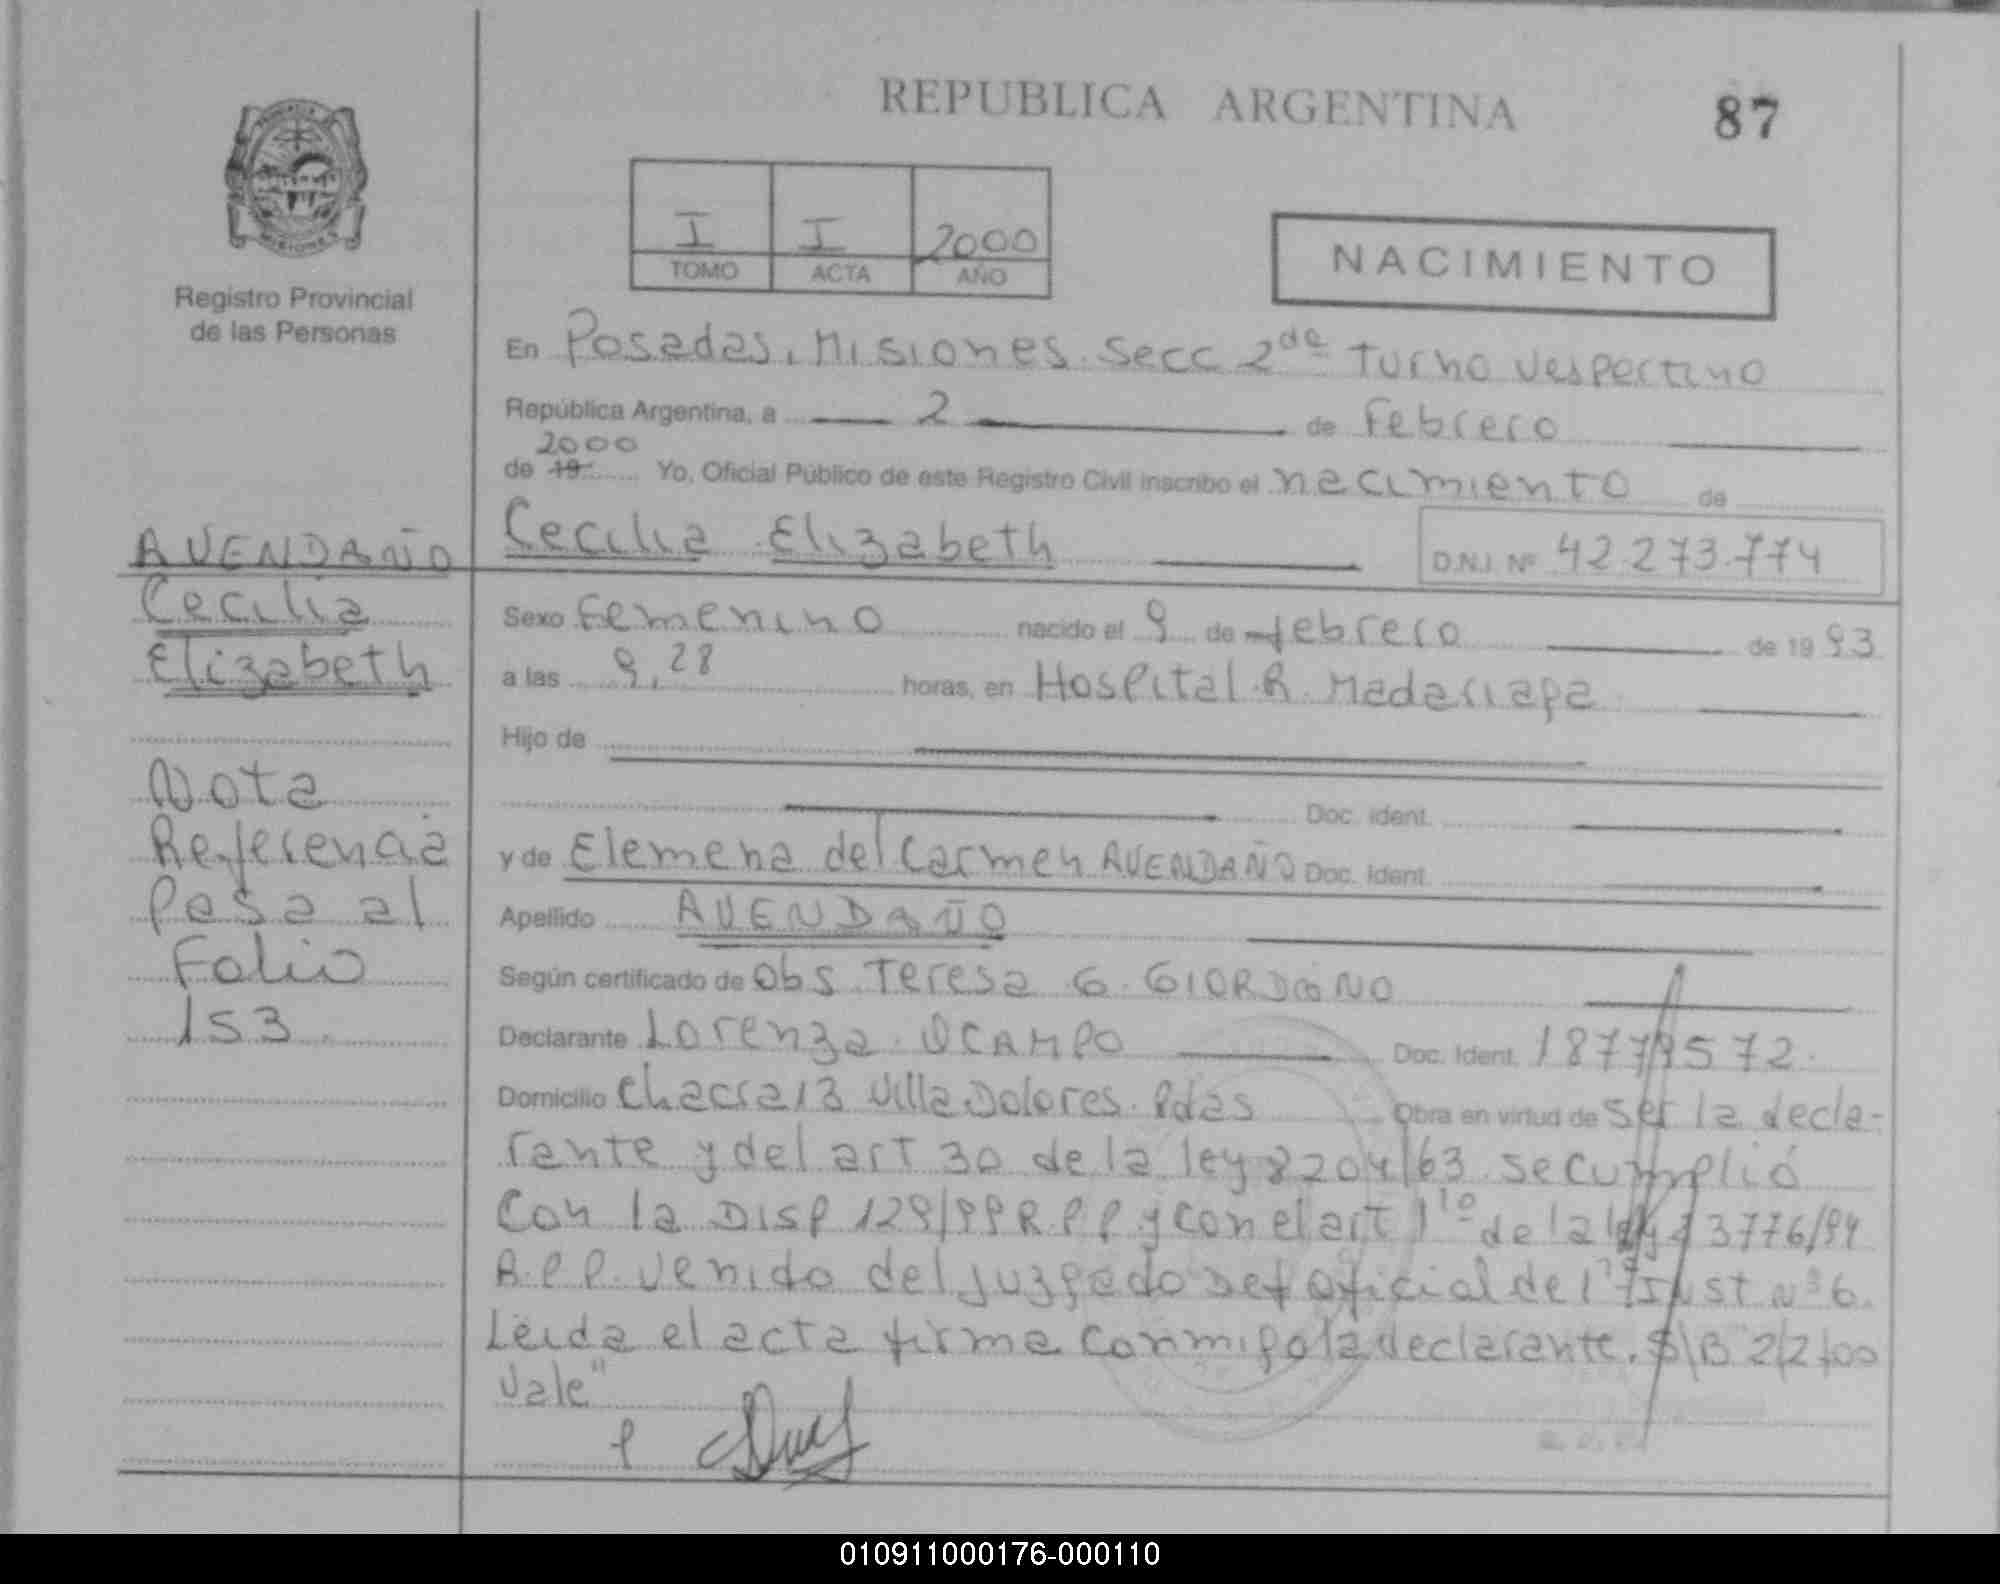 REPUBLICA ARGENTINA
87
I I 2000
TOMO ACTA AÑO
NACIMIENTO
Registro Provincial
de las Personas
En Posadas, Misiones Secc 2da Turno Vespertino
República Argentina, a 2 de Febrero
2000
de 19 Yo, Oficial Público de este Registro Civil inscribo el nacimiento de
Cecilia Elizabeth D.N.I. Nº 42.273.774
AVENDAÑO
Cecilia
Elizabeth
Nota
Referencia
Pasa al
Folio
153.
Sexo femenino nacido el 9 de febrero de 19 93
a las 9,28 horas, en Hospital R. Madariaga
Hijo de
Doc. Ident.
y de Elemena del Carmen AVENDAÑO Doc. Ident.
Apellido AVENDAÑO
Según certificado de Obs Teresa G. GIORDANO
Declarante Lorenza OCAMPO Doc. Ident. 18779572.
Domicilio Chacra 13 Villa Dolores. Pdas Obra en virtud de ser la decla-
rante y del art 30 de la ley 8204/63 se cumplió
Con la DISP 129/99 R.P.P y con el art 1º de la ley 3776/94
R.P.P. venido del juzgado Def oficial de 1º Inst Nº 6.
Leida el acta firma conmigo la declarante. S/B 2/2/00
Vale"
010911000176-000110